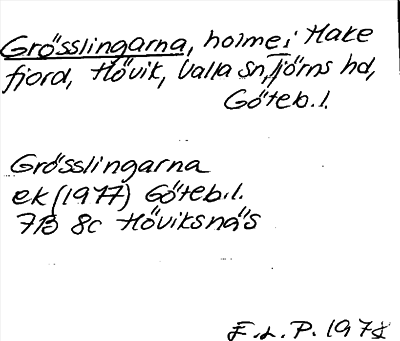 Grösslingarna, holme i Hake
fjord, Hövik, Valla sn, Tjörns hd,
Göteb.l.
Grösslingarna
ek (1977) Göteb.l.
7B 8c Höviksnäs
E.L.P. 1978